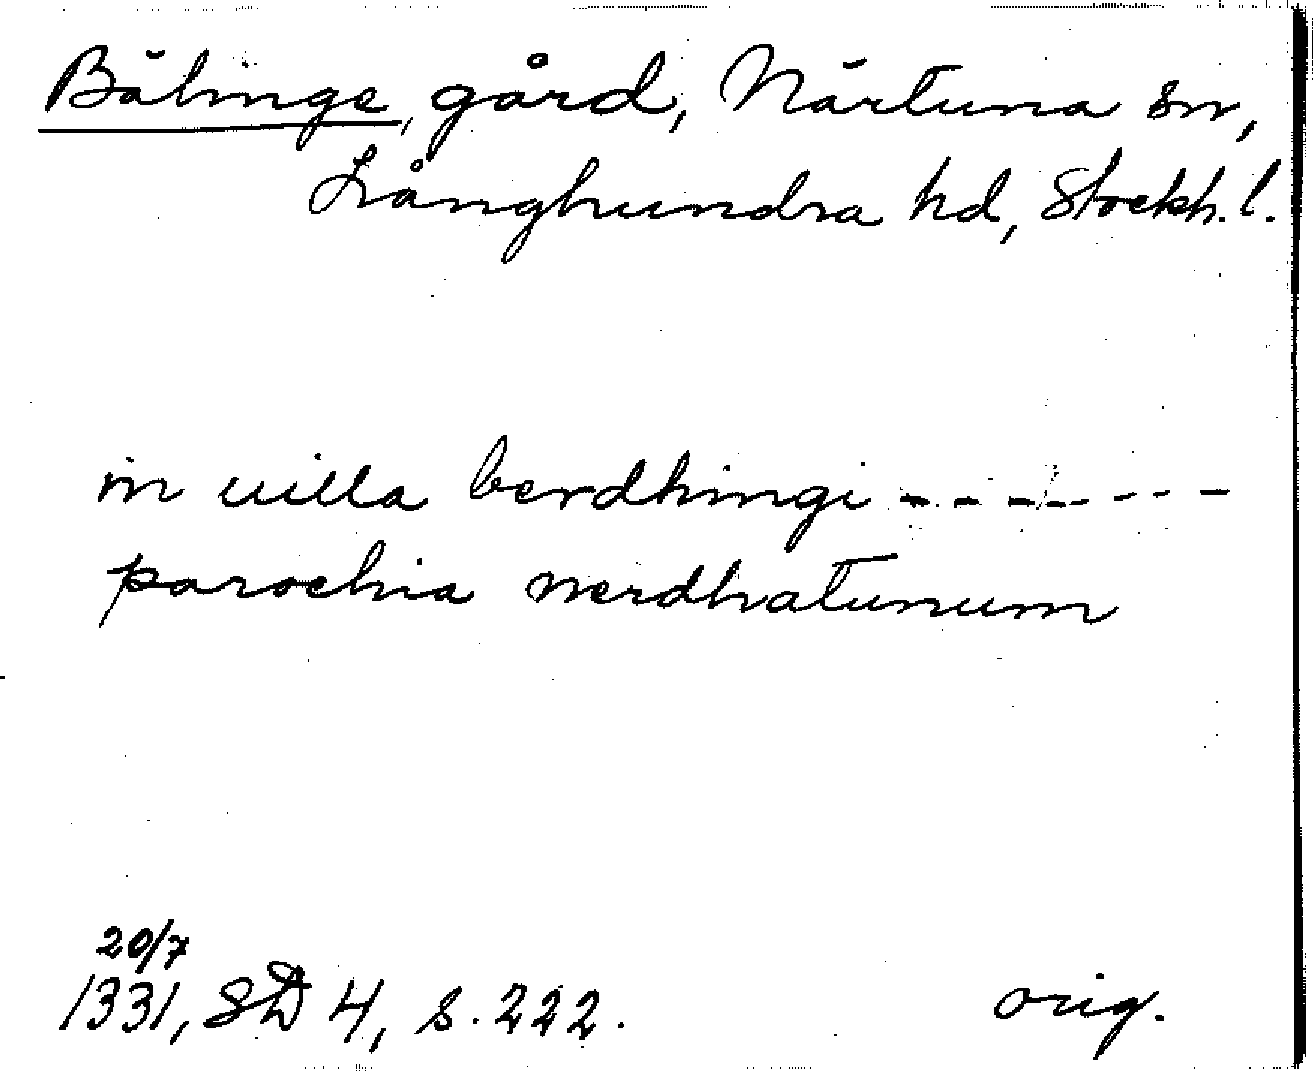 Bälinge, gård, Närtuna sn,
Långhundra hd, Stockh. l.
in uilla berdhingi - - - - - - -
parochia nerdhatunum
20/7
1331, SD 4, s. 222.
orig.